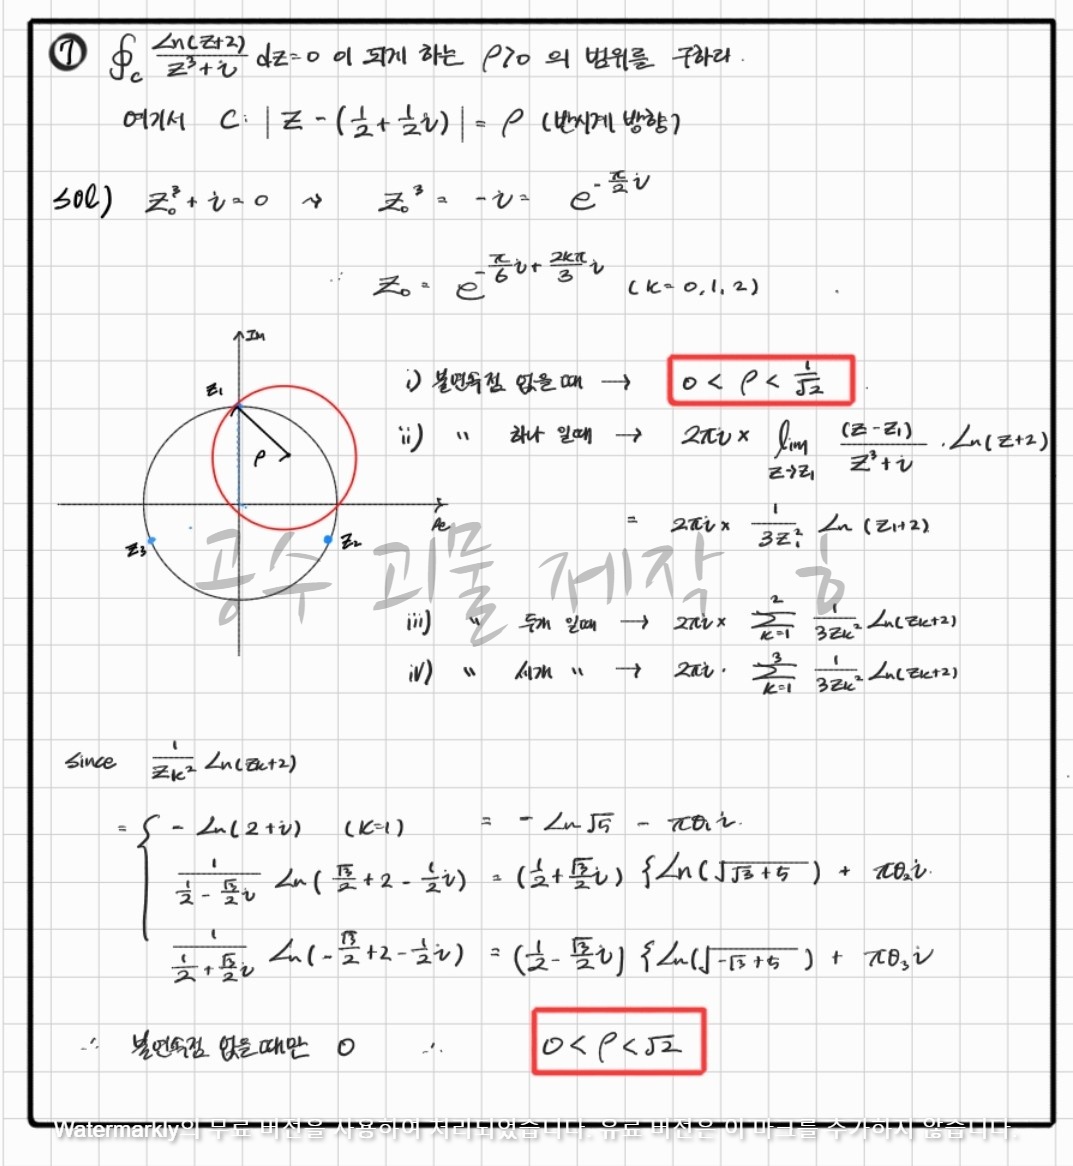 ⑦ ∮_C Ln(z+2)/(z³+i) dz=0 이 되게 하는 ρ>0 의 범위를 구하라.
여기서 C: |z-(1/2+1/2 i)| = ρ (반시계 방향)
sol) z₀³+i=0 → z₀³ = -i = e^(-π/2 i)
∴ z₀ = e^(-π/6 i + 2kπ/3 i) (k=0,1,2)
Im
z₁
ρ
Re
z₃
z₂
i) 불연속점 없을때 → 0 < ρ < 1/√2
ii) " 하나 일때 → 2πi × lim_(z→z₁) (z-z₁)/(z³+i) · Ln(z+2)
= 2πi × 1/(3z₁²) Ln(z₁+2)
iii) " 두개 일때 → 2πi × Σ_(k=1)^2 1/(3z_k²) Ln(z_k+2)
iv) " 세개 " → 2πi · Σ_(k=1)^3 1/(3z_k²) Ln(z_k+2)
공수 괴물 제작 중
since 1/z_k² Ln(z_k+2)
= { -Ln(2+i) (k=1) = -Ln√5 - πθ₁i.
1/(1/2 - √3/2 i) Ln(√3/2+2-1/2 i) = (1/2+√3/2 i) {Ln(√(√3+5)) + πθ₂i.
1/(1/2 + √3/2 i) Ln(-√3/2+2-1/2 i) = (1/2-√3/2 i) {Ln(√(-√3+5)) + πθ₃i
∴ 불연속점 없을때만 0 ∴ 0 < ρ < √2
Watermarkly의 무료 버전을 사용하여 처리되었습니다. 유료 버전은 이 마크를 추가하지 않습니다.